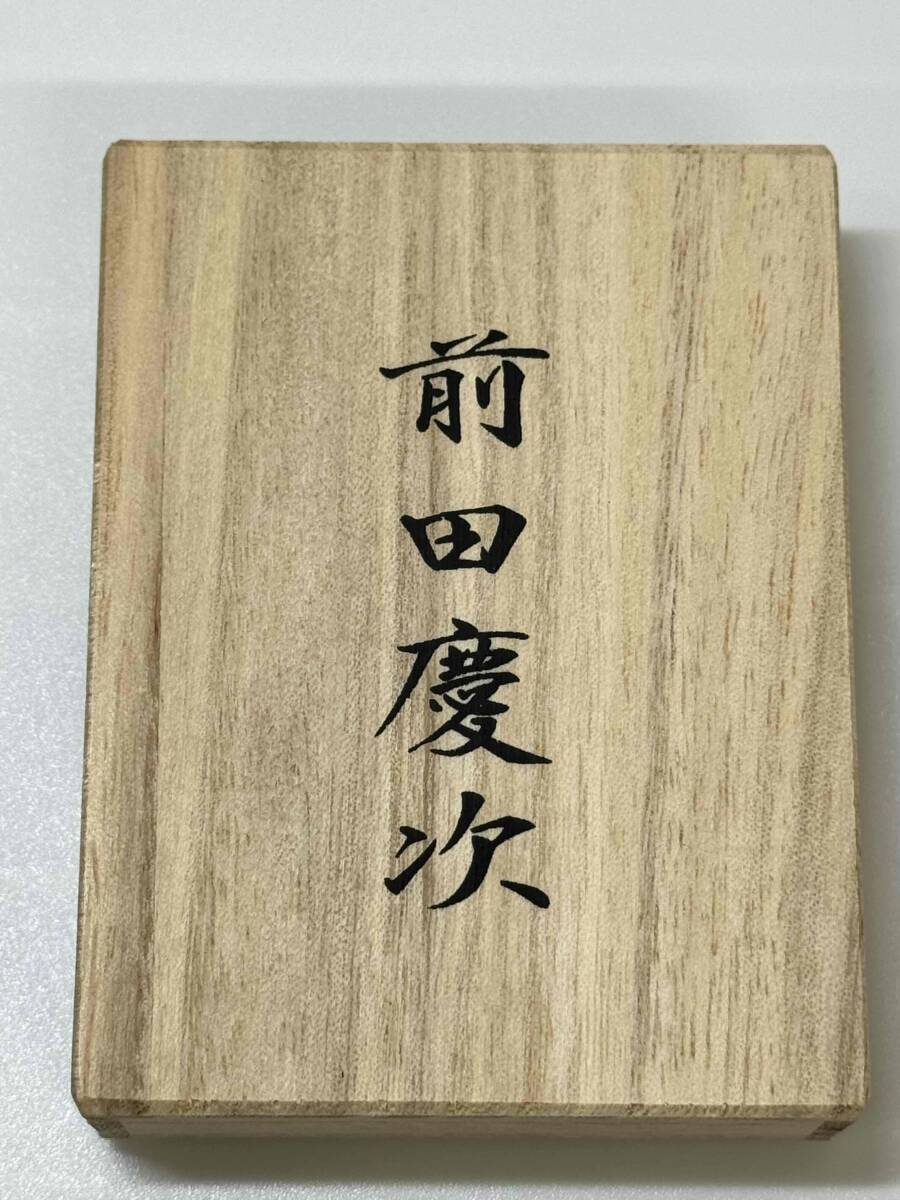 前田慶次